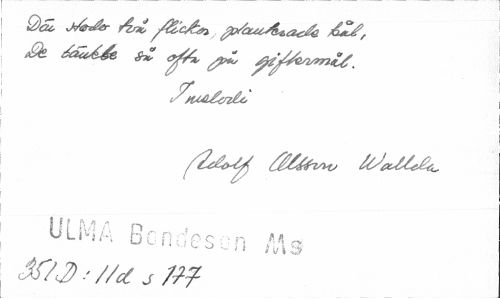 Där stodo två flickor, planterade kål,
De tänkte så ofta på giftermål.
1 melodi
Adolf Olsson Wallda
ULMA Bondeson Ms
351D: 11d s 177